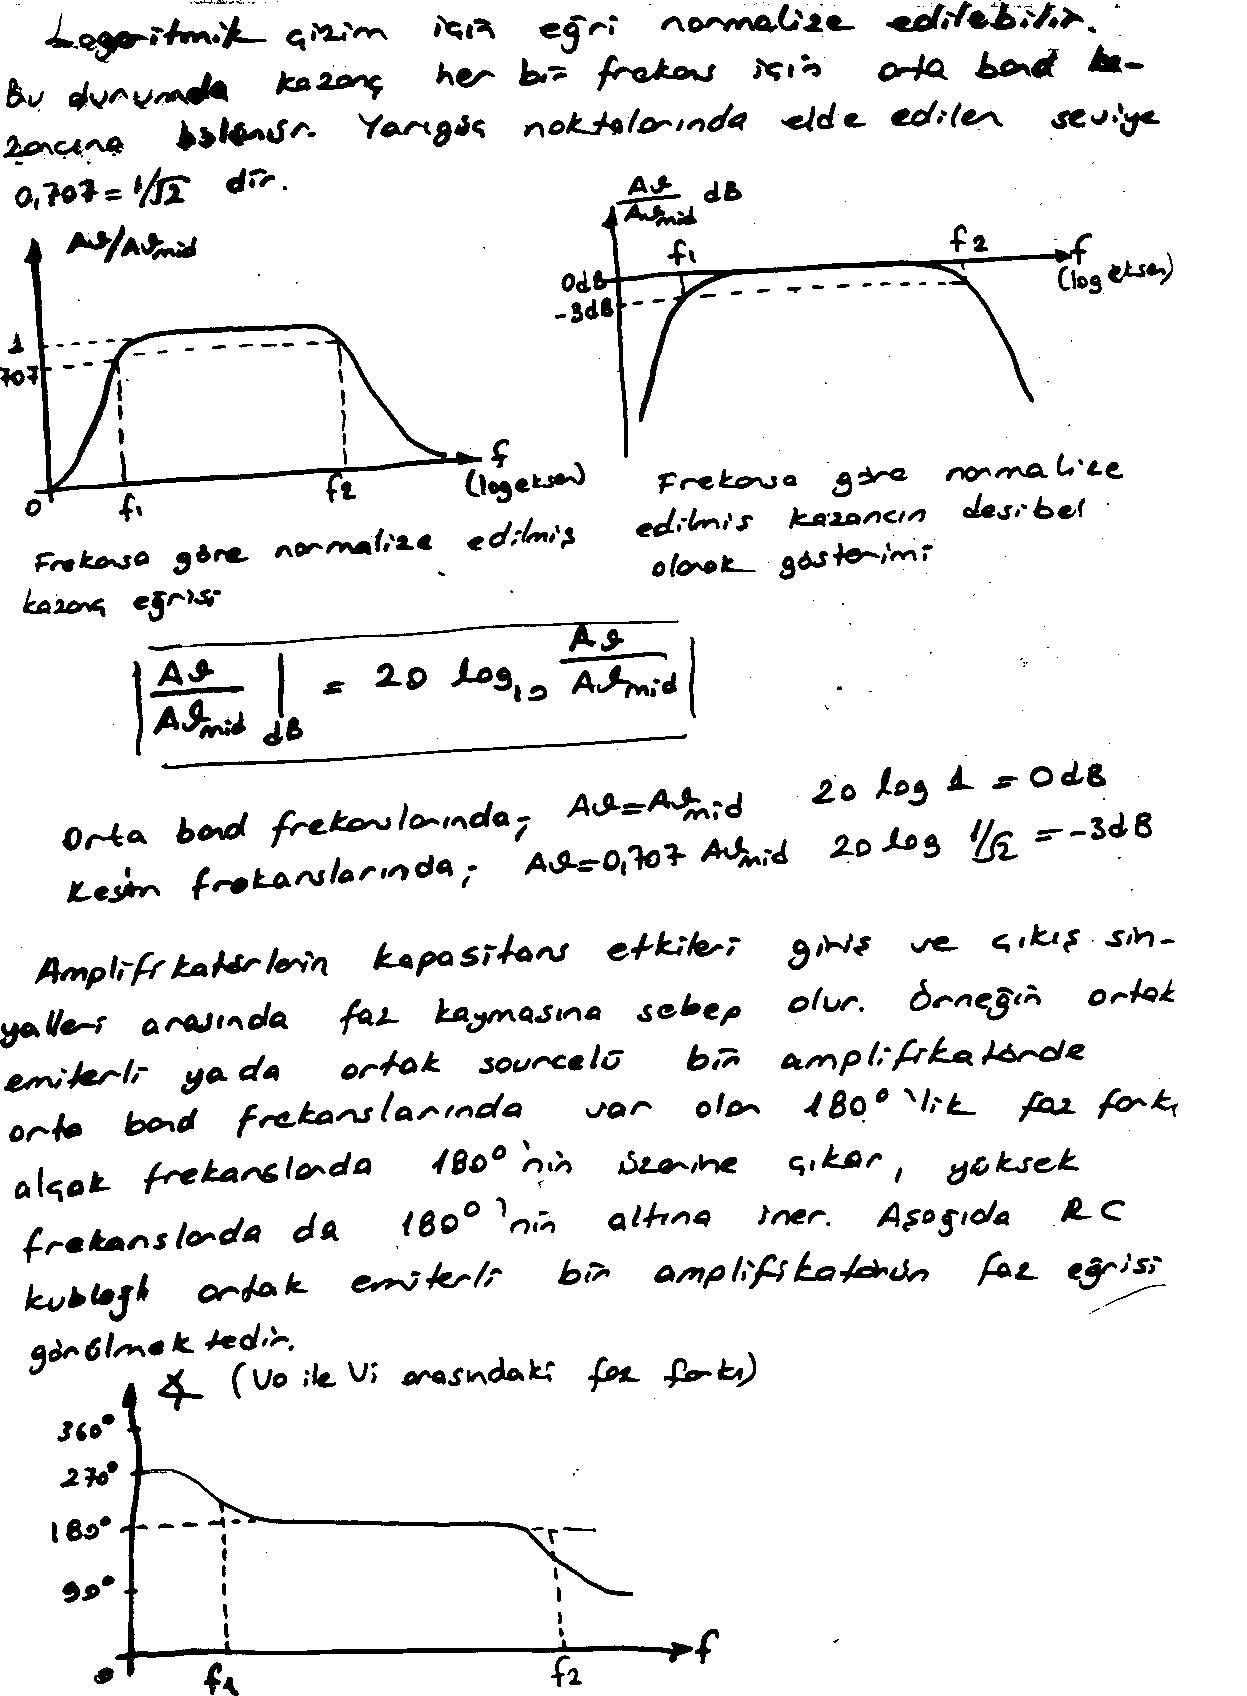 Logaritmik çizim için eğri normalize edilebilir.
Bu durumda kazanç her bir frekans için orta band ka-
zancına bölünür. Yarıgüç noktalarında elde edilen seviye
0,707 = 1/√2 dir.
Aϑ/Aϑmid
1
707
0
f1
f2
f
(log eksen)
Frekansa göre normalize edilmiş
kazanç eğrisi
Aϑ/Aϑmid dB
f1
f2
f
(log eksen)
0dB
-3dB
Frekansa göre normalize
edilmiş kazancın desibel
olarak gösterimi
|Aϑ/Aϑmid|dB = 20 log10 Aϑ/Aϑmid
Orta band frekanslarında; Aϑ=Aϑmid 20 log 1 = 0dB
Kesim frekanslarında; Aϑ=0,707 Aϑmid 20 log 1/√2 = -3dB
Amplifikatörlerin kapasitans etkileri giriş ve çıkış sin-
yalleri arasında faz kaymasına sebep olur. Örneğin ortak
emiterli yada ortak sourcelü bir amplifikatörde
orta band frekanslarında var olan 180° 'lik faz farkı
alçak frekanslarda 180° 'nin üzerine çıkar, yüksek
frekanslarda da 180° 'nin altına iner. Aşağıda RC
kublajlı ortak emiterli bir amplifikatörün faz eğrisi
görülmektedir.
∡ (Vo ile Vi arasındaki faz farkı)
360°
270°
180°
90°
0
f1
f2
f